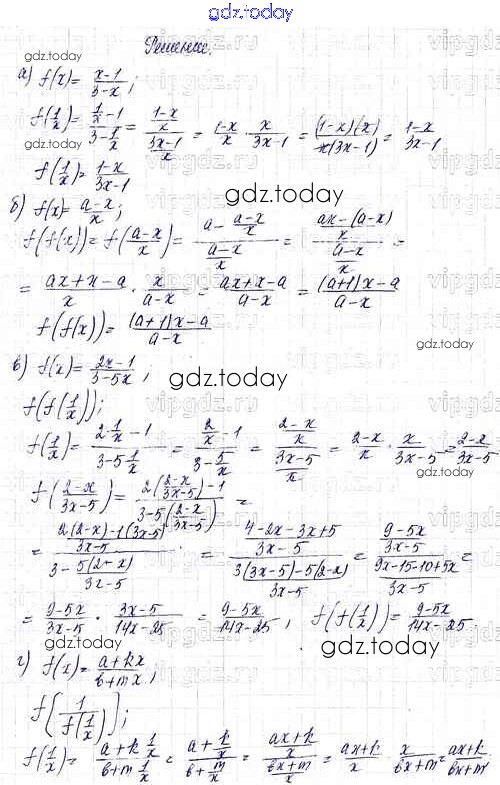 gdz.today
Решение.
gdz.today
а) f(x) = \frac{x-1}{3-x};
f(\frac{1}{x}) = \frac{\frac{1}{x}-1}{3-\frac{1}{x}} = \frac{\frac{1-x}{x}}{\frac{3x-1}{x}} = \frac{1-x}{x} \cdot \frac{x}{3x-1} = \frac{(1-x)(x)}{x(3x-1)} = \frac{1-x}{3x-1}
f(\frac{1}{x}) = \frac{1-x}{3x-1}
gdz.today
б) f(x) = \frac{a-x}{x};
f(f(x)) = f(\frac{a-x}{x}) = \frac{a-\frac{a-x}{x}}{\frac{a-x}{x}} = \frac{\frac{ax-(a-x)}{x}}{\frac{a-x}{x}} =
= \frac{ax+x-a}{x} \cdot \frac{x}{a-x} = \frac{ax+x-a}{a-x} = \frac{(a+1)x-a}{a-x}
f(f(x)) = \frac{(a+1)x-a}{a-x}
в) f(x) = \frac{2x-1}{3-5x};
gdz.today
f(f(\frac{1}{x}));
f(\frac{1}{x}) = \frac{2\frac{1}{x}-1}{3-5\frac{1}{x}} = \frac{\frac{2}{x}-1}{3-\frac{5}{x}} = \frac{\frac{2-x}{x}}{\frac{3x-5}{x}} = \frac{2-x}{x} \cdot \frac{x}{3x-5} = \frac{2-x}{3x-5}
f(\frac{2-x}{3x-5}) = \frac{2(\frac{2-x}{3x-5})-1}{3-5(\frac{2-x}{3x-5})} =
= \frac{\frac{2(2-x)-1(3x-5)}{3x-5}}{3-\frac{5(2-x)}{3x-5}} = \frac{\frac{4-2x-3x+5}{3x-5}}{\frac{3(3x-5)-5(2-x)}{3x-5}} = \frac{\frac{9-5x}{3x-5}}{\frac{9x-15-10+5x}{3x-5}} =
= \frac{9-5x}{3x-5} \cdot \frac{3x-5}{14x-25} = \frac{9-5x}{14x-25}; f(f(\frac{1}{x})) = \frac{9-5x}{14x-25}.
г) f(x) = \frac{a+kx}{b+mx};
gdz.today
f(\frac{1}{f(\frac{1}{x})});
f(\frac{1}{x}) = \frac{a+k\frac{1}{x}}{b+m\frac{1}{x}} = \frac{a+\frac{k}{x}}{b+\frac{m}{x}} = \frac{\frac{ax+k}{x}}{\frac{bx+m}{x}} = \frac{ax+k}{x} \cdot \frac{x}{bx+m} = \frac{ax+k}{bx+m}